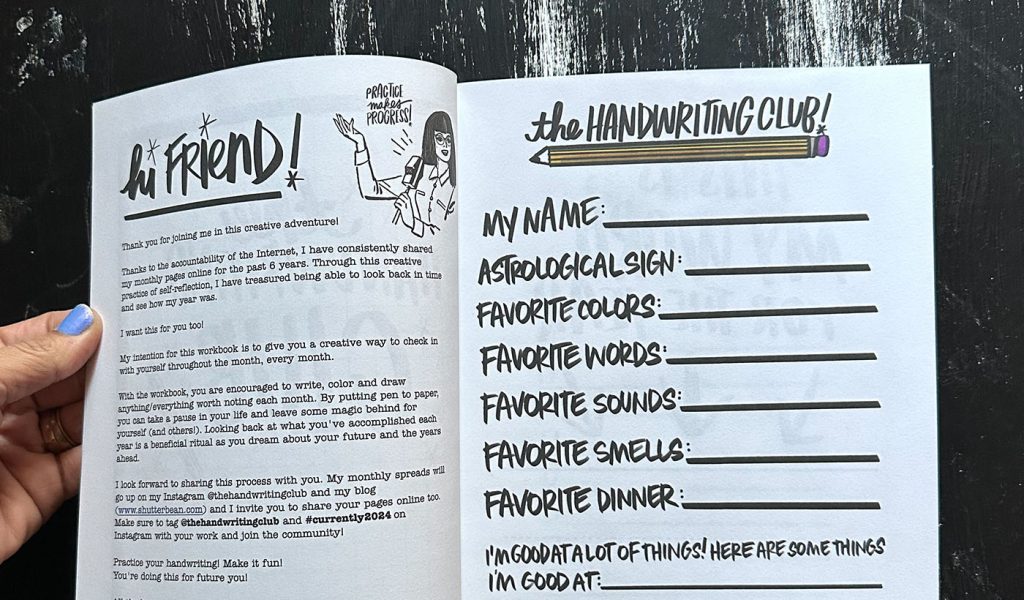 hi FRIEND!
PRACTICE
makes
PROGRESS!
Thank you for joining me in this creative adventure!
Thanks to the accountability of the Internet, I have consistently shared
my monthly pages online for the past 6 years. Through this creative
practice of self-reflection, I have treasured being able to look back in time
and see how my year was.
I want this for you too!
My intention for this workbook is to give you a creative way to check in
with yourself throughout the month, every month.
With the workbook, you are encouraged to write, color and draw
anything/everything worth noting each month. By putting pen to paper,
you can take a pause in your life and leave some magic behind for
yourself (and others!). Looking back at what you've accomplished each
year is a beneficial ritual as you dream about your future and the years
ahead.
I look forward to sharing this process with you. My monthly spreads will
go up on my Instagram @thehandwritingclub and my blog
(www.shutterbean.com) and I invite you to share your pages online too.
Make sure to tag @thehandwritingclub and #currently2024 on
Instagram with your work and join the community!
Practice your handwriting! Make it fun!
You're doing this for future you!
the HANDWRITING CLUB!
MY NAME:
ASTROLOGICAL SIGN:
FAVORITE COLORS:
FAVORITE WORDS:
FAVORITE SOUNDS:
FAVORITE SMELLS:
FAVORITE DINNER:
I'M GOOD AT A LOT OF THINGS! HERE ARE SOME THINGS
I'M GOOD AT: